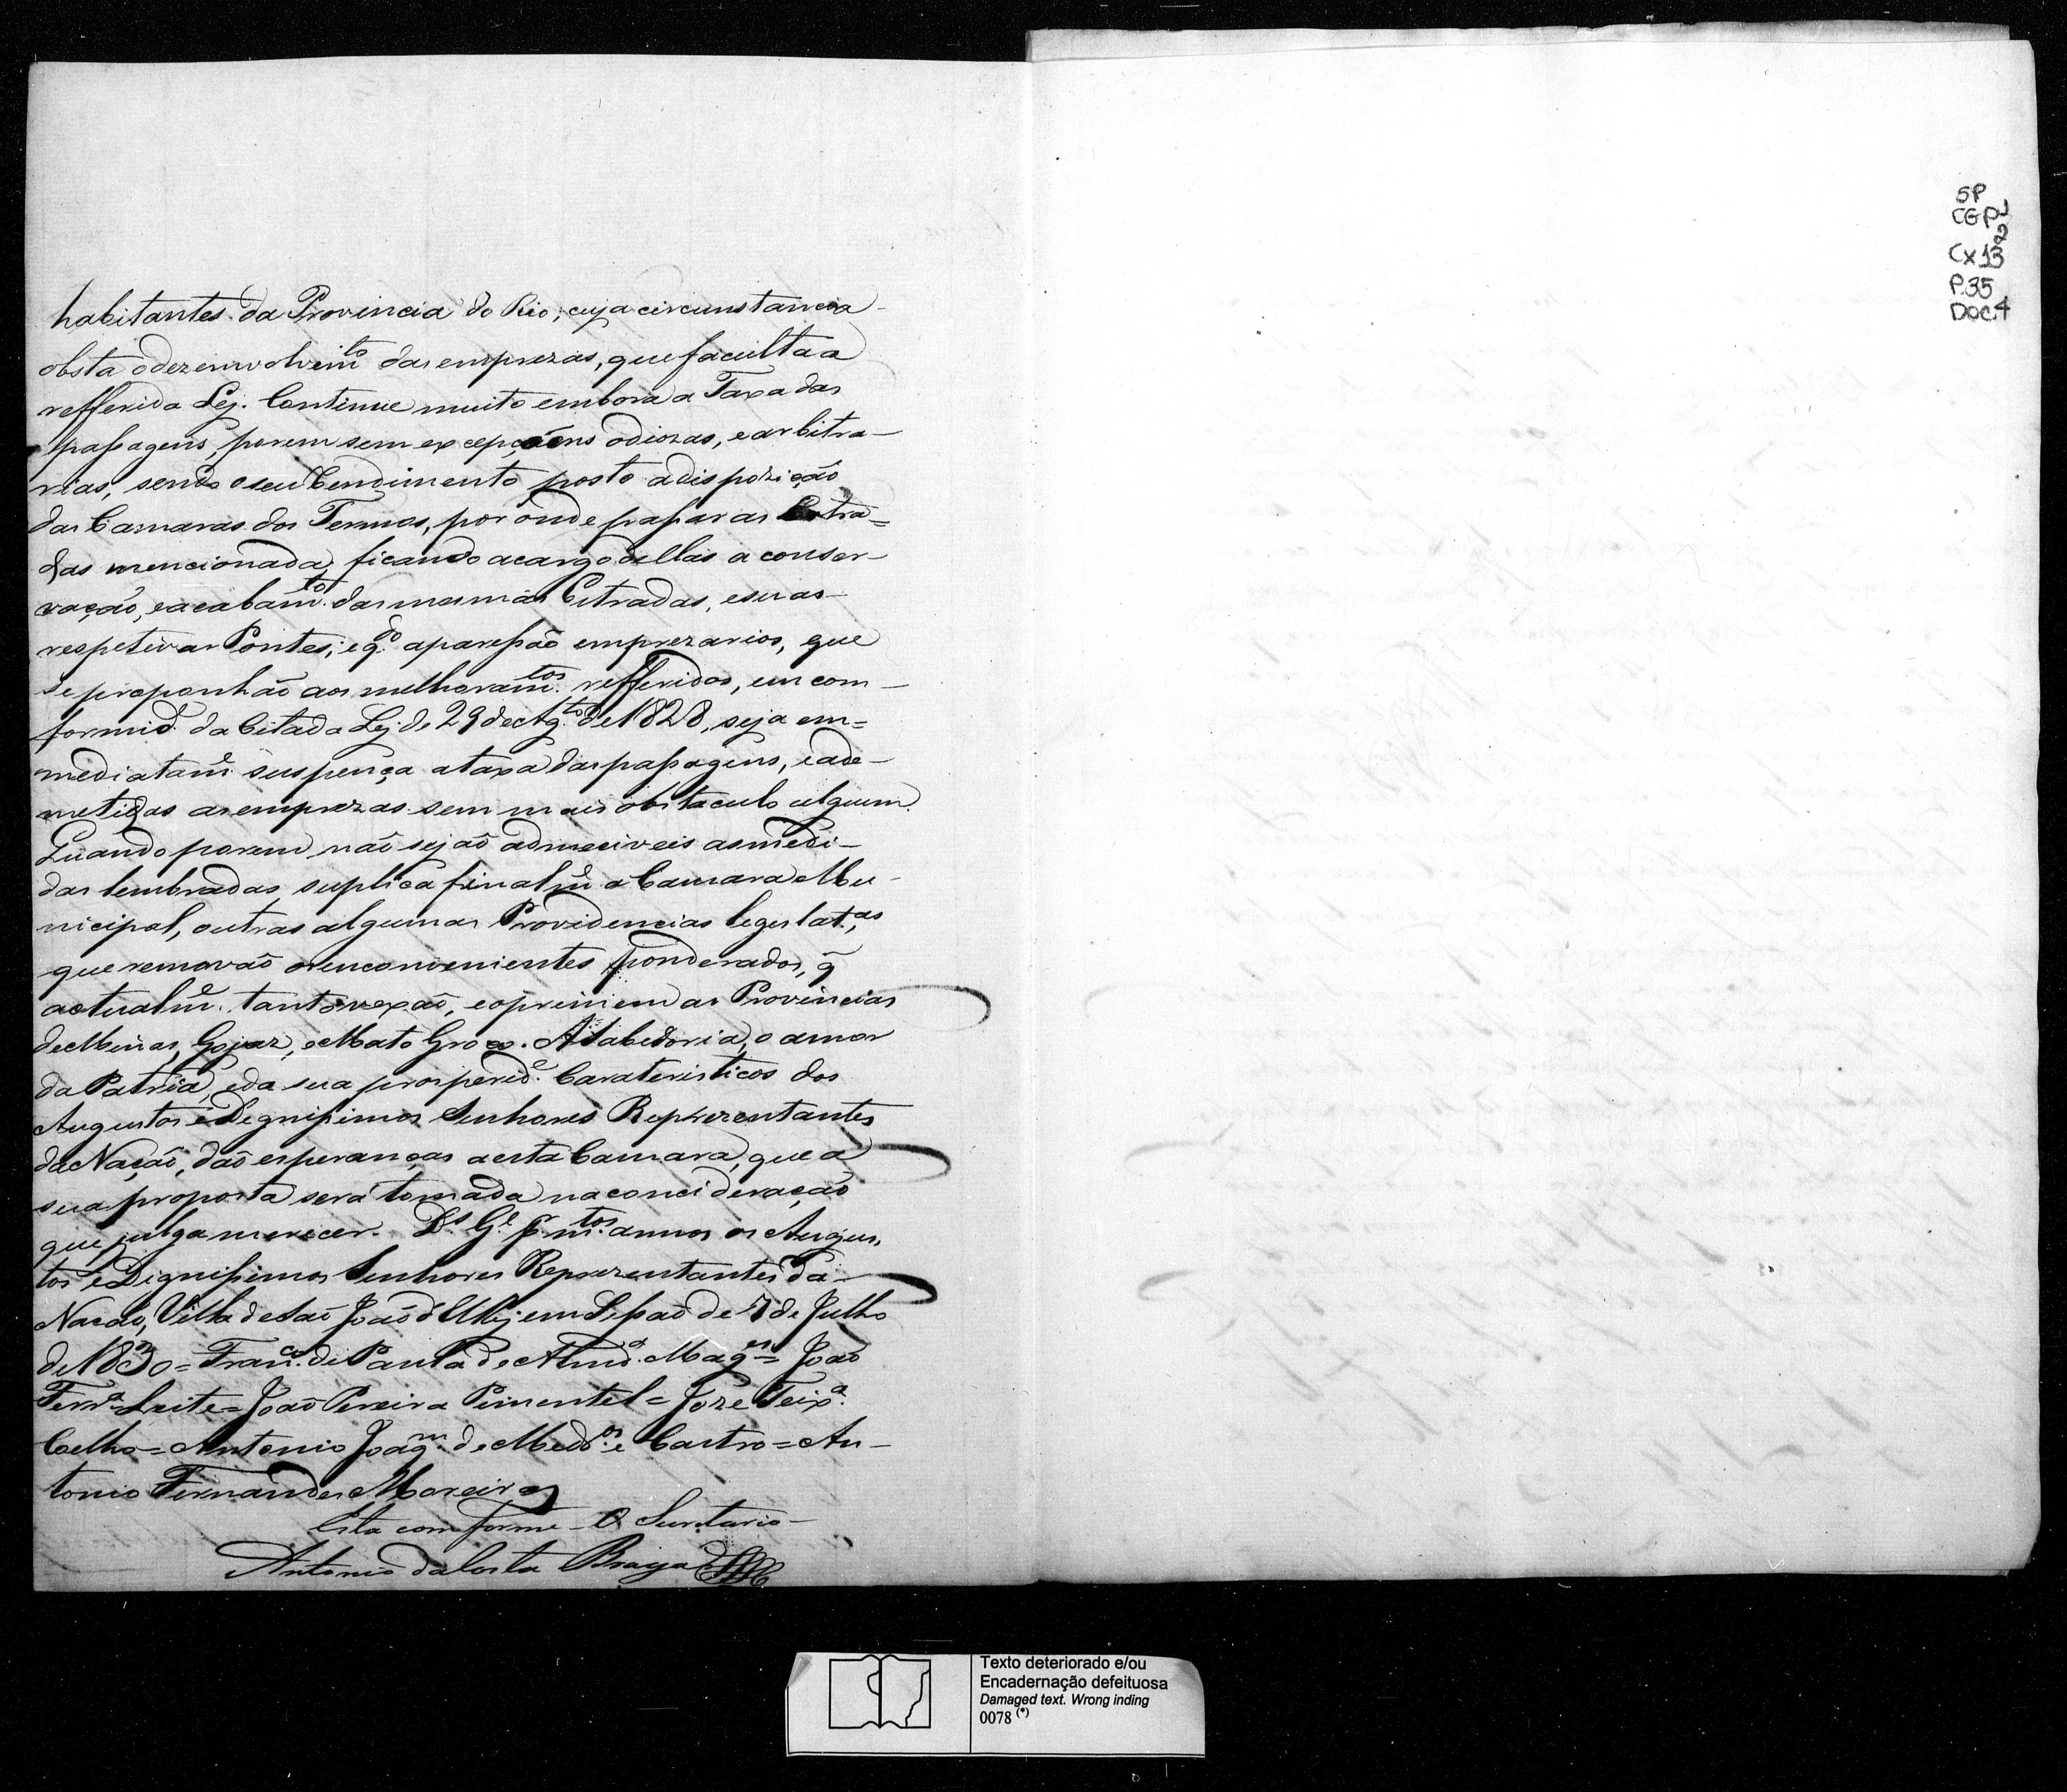 habitantes da Provincia do Rio, cuja circunstancia
obsta odezenvolvim.to das emprezas, que faculta a
refferida Ley. Continue muito embora a Taxa das
passagens, porem sem excepçoens odiozas, e arbitra-
rias, sendo o seu Rendimento posto a dispozição
das Camaras dos Termos, por onde passar as Estra=
das mencionada, ficando a cargo dellas a conser-
vação, e acabam.to das mesmas Estradas, e suas
respetivas Pontes; e q.do aparessão emprezarios, que
se proponhão aos melhoram.tos refferidos, em com-
formid.e da Citada Ley de 29 de Ag.to de 1828, seja em=
mediatam.e suspença a taxa das passagens, e ade-
metidas as emprezas sem mais obstaculo algum.
Quando porem não sejaõ admeciveis as medi-
das lembradas, suplica finalm.e a Camara Mu-
nicipal, outras algumas Providencias legislat.as,
que removão os enconvenientes ponderados, q̃
actualm.e tanto vexaõ, e oprimem as Provincias
de Minas, Gojaz, e Mato Groço. A Sabedoria, o amor
da Patria, e da sua prosperid.e Carateristicos dos
Augustos e Degnissimos Senhores Reprezentantes
da Nação, daõ esperanças a esta Camara, que a
sua proposta será tomada na concideração
que julga merecer. D.s G.e p.r m.tos annos os Augus,
tos e Dignissimos Senhores Reprezentantes da
Nacaõ, Villa de Saõ Joaõ d'ElRej em Sessaõ de 7 de Julho
de 1830 = Fran.co de Paula de Almd.a Mag.es = Joaõ
Ferr.a Leite = Joaõ Pereira Pimentel = Joze Teix.a
Coelho = Antonio Joaq.m de Medr.os e Castro = An-
tonio Fernandes Moreira
Esta comforme - O Secretario -
Antonio da Costa Braga
SP
CGP1
Cx13
P.35
DOC.4
Texto deteriorado e/ou
Encadernação defeituosa
Damaged text. Wrong inding
0078 (*)